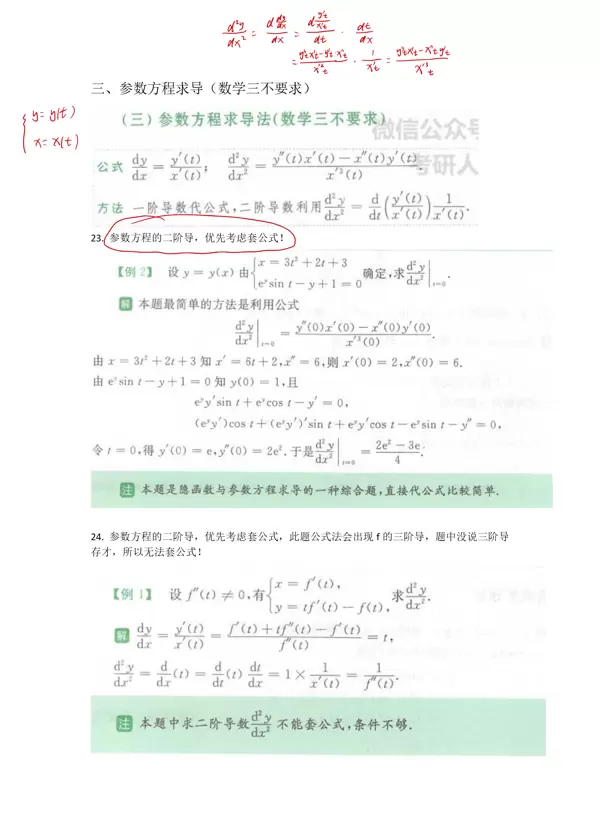 d²y/dx² = d(dy/dx)/dx = d(y't/x't)/dt · dt/dx
= (y''t x't − y't x''t)/x'²t · 1/x't = (y''t x't − x''t y't)/x'³t
三、参数方程求导（数学三不要求）
{ y = y(t)
x = x(t)
（三）参数方程求导法(数学三不要求)
微信公众号
考研人
公式 dy/dx = y′(t)/x′(t); d²y/dx² = (y″(t)x′(t) − x″(t)y′(t))/x′³(t).
方法 一阶导数代公式,二阶导数利用 d²y/dx² = d/dt (y′(t)/x′(t)) 1/x′(t).
23. 参数方程的二阶导，优先考虑套公式！
【例2】 设 y = y(x) 由 { x = 3t² + 2t + 3
e^y sin t − y + 1 = 0 确定,求 d²y/dx² |t=0 .
解 本题最简单的方法是利用公式
d²y/dx² |t=0 = (y″(0)x′(0) − x″(0)y′(0))/x′³(0).
由 x = 3t² + 2t + 3 知 x′ = 6t + 2, x″ = 6,则 x′(0) = 2, x″(0) = 6.
由 e^y sin t − y + 1 = 0 知 y(0) = 1,且
e^y y′ sin t + e^y cos t − y′ = 0,
(e^y y′)cos t + (e^y y′)′ sin t + e^y y′ cos t − e^y sin t − y″ = 0,
令 t = 0,得 y′(0) = e, y″(0) = 2e². 于是 d²y/dx² |t=0 = (2e² − 3e)/4 .
注 本题是隐函数与参数方程求导的一种综合题,直接代公式比较简单.
24. 参数方程的二阶导，优先考虑套公式，此题公式法会出现 f 的三阶导，题中没说三阶导
存才，所以无法套公式！
【例1】 设 f″(t) ≠ 0,有 { x = f′(t),
y = tf′(t) − f(t), 求 d²y/dx².
解 dy/dx = y′(t)/x′(t) = (f′(t) + tf″(t) − f′(t))/f″(t) = t,
d²y/dx² = d/dx (t) = d/dt (t) dt/dx = 1 × 1/x′(t) = 1/f″(t).
注 本题中求二阶导数 d²y/dx² 不能套公式,条件不够.